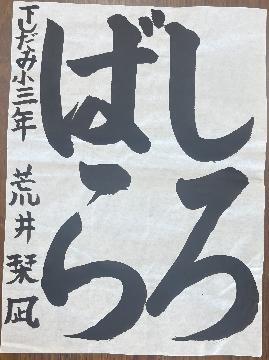 しろ
ばら
下だみ小三年 荒井栞凪